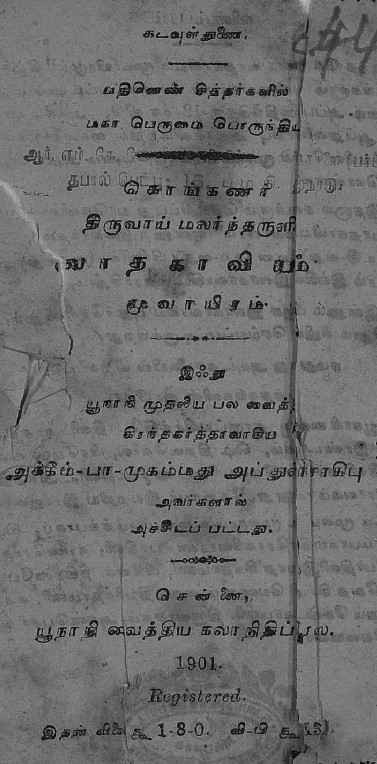 கடவுள் துணை.
பதினெண் சித்தர்களில்
மகா பெருமை பொருந்திய
ஆர். எம். கே.
தபால்
கொங்கணர்
திருவாய் மலர்ந்தருளி
வாதகாவியம்
மூவாயிரம்.
இஃது
யூநாநி முதலிய பல வைத்
கிரந்தகர்த்தாவாகிய
அக்கீம்-பா-முகம்மது அப்துல்சாகிபு
அவர்களால்
அச்சிடப் பட்டது.
சென்னை,
யூநாநி வைத்திய கலாநிதிப்
1901.
Registered.
இதன் விலை ரூ 1-8-0. வி-பி ரூ